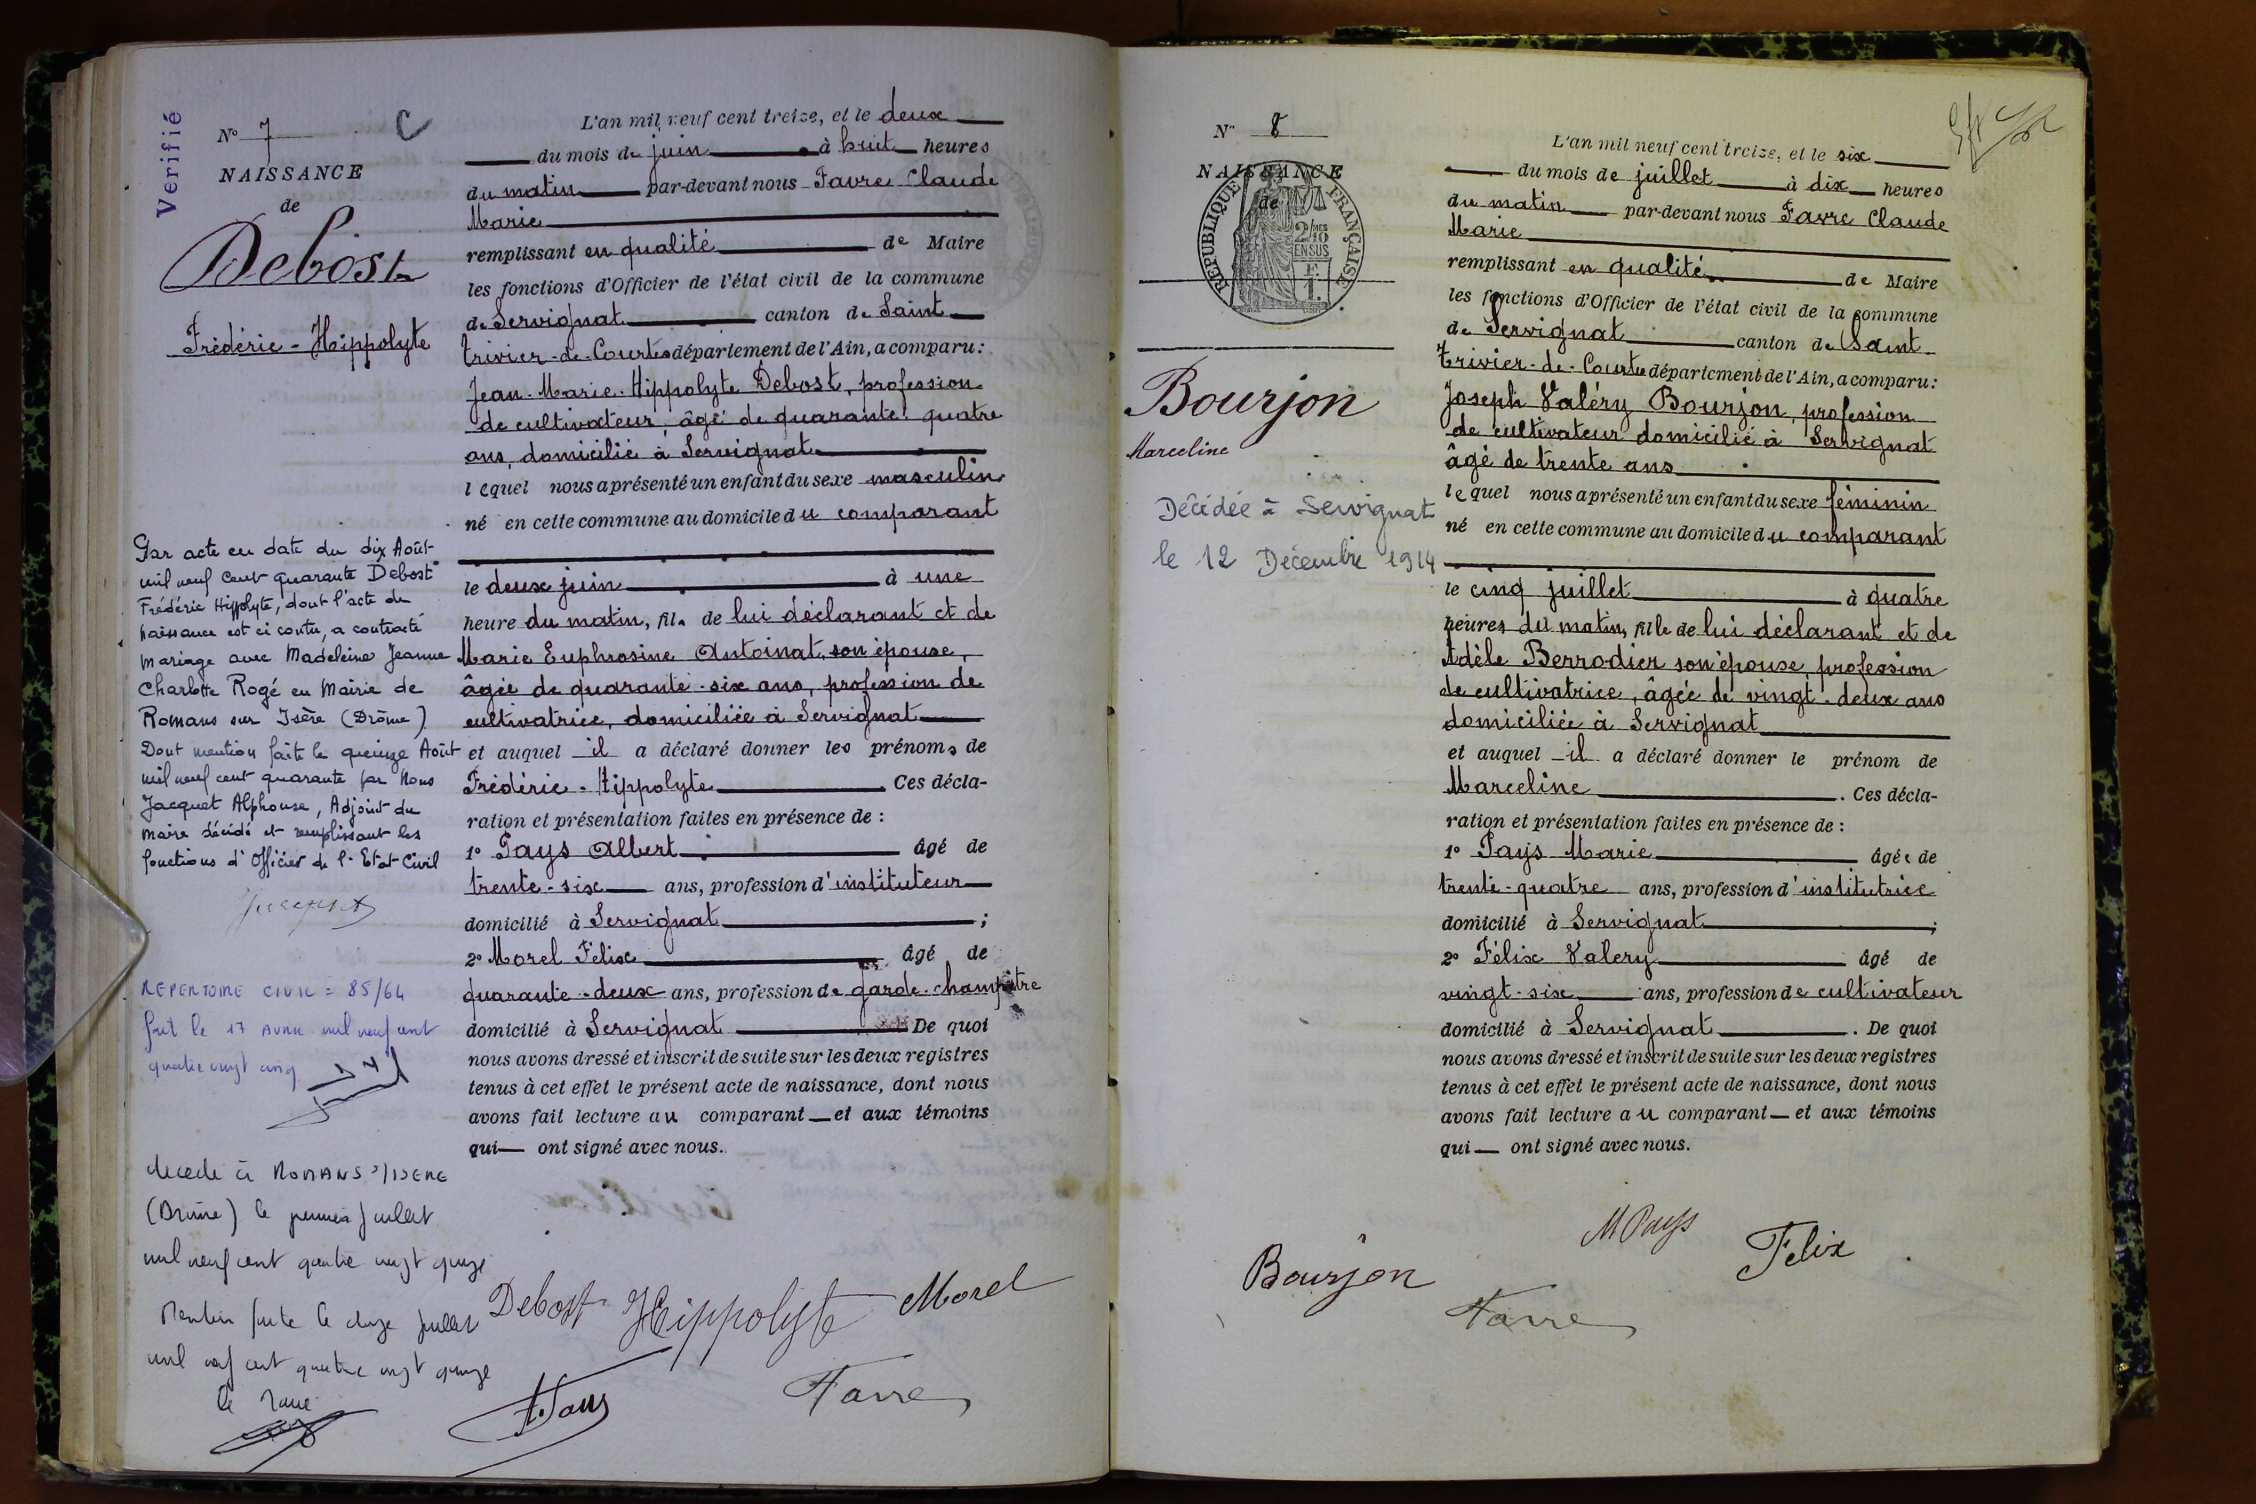 Verifié
N° 7
C
NAISSANCE
de
Debost
Frédéric-Hippolyte
L'an mil neuf cent treize, et le deux
du mois de juin à huit heures
du matin par-devant nous Favre Claude
Marie
remplissant en qualité de Maire
les fonctions d'Officier de l'état civil de la commune
de Servignat canton de Saint
Trivier-de-Courtes département de l'Ain, a comparu :
Jean-Marie-Hippolyte Debost, profession
de cultivateur, âgé de quarante-quatre
ans, domicilié à Servignat
lequel nous a présenté un enfant du sexe masculin
né en cette commune au domicile du comparant
le deux juin à une
heure du matin, fils de lui déclarant et de
Marie Euphrosine Antoinat, son épouse,
âgée de quarante-six ans, profession de
cultivatrice, domiciliée à Servignat
et auquel il a déclaré donner les prénoms de
Frédéric-Hippolyte. Ces décla-
ration et présentation faites en présence de :
1° Pays Albert âgé de
trente-six ans, profession d'instituteur
domicilié à Servignat ;
2° Morel Félix âgé de
quarante-deux ans, profession de garde-champêtre
domicilié à Servignat De quoi
nous avons dressé et inscrit de suite sur les deux registres
tenus à cet effet le présent acte de naissance, dont nous
avons fait lecture au comparant et aux témoins
qui ont signé avec nous.
Par acte en date du dix Août
mil neuf cent quarante Debost
Frédéric Hippolyte, dont l'acte de
naissance est ci contre, a contracté
mariage avec Madeleine Jeanne
Charlotte Rogé en Mairie de
Romans sur Isère (Drôme)
Dont mention faite le quinze Août
mil neuf cent quarante par Nous
Jacquet Alphonse, Adjoint du
maire décédé et remplissant les
fonctions d'Officier de l'Etat-Civil
Jacquet
REPERTOIRE CIVIL = 85/64
fait le 17 AVRIL mil neuf cent
quatre vingt cinq
décédé à ROMANS S/ISERE
(Drôme) le premier Juillet
mil neuf cent quatre vingt quinze
Mention faite le douze Juillet
mil neuf cent quatre vingt quinze
Le Maire
Debost Hippolyte Morel
A. Pays
Favre
N° 8
NAISSANCE
de
REPUBLIQUE FRANÇAISE
2/10 EN SUS
F. 1.
Bourjon
Marceline
Décédée à Servignat
le 12 Décembre 1914
L'an mil neuf cent treize, et le six
du mois de juillet à dix heures
du matin par-devant nous Favre Claude
Marie
remplissant en qualité de Maire
les fonctions d'Officier de l'état civil de la commune
de Servignat canton de Saint
Trivier-de-Courtes département de l'Ain, a comparu :
Joseph Valéry Bourjon, profession
de cultivateur domicilié à Servignat
âgé de trente ans
lequel nous a présenté un enfant du sexe féminin
né en cette commune au domicile du comparant
le cinq juillet à quatre
heures du matin, fille de lui déclarant et de
Adèle Berrodier son épouse, profession
de cultivatrice, âgée de vingt-deux ans
domiciliée à Servignat
et auquel il a déclaré donner le prénom de
Marceline. Ces décla-
ration et présentation faites en présence de :
1° Pays Marie âgée de
trente-quatre ans, profession d'institutrice
domicilié à Servignat ;
2° Félix Valery âgé de
vingt-six ans, profession de cultivateur
domicilié à Servignat. De quoi
nous avons dressé et inscrit de suite sur les deux registres
tenus à cet effet le présent acte de naissance, dont nous
avons fait lecture au comparant et aux témoins
qui ont signé avec nous.
M Pays
Felix
Bourjon
Favre